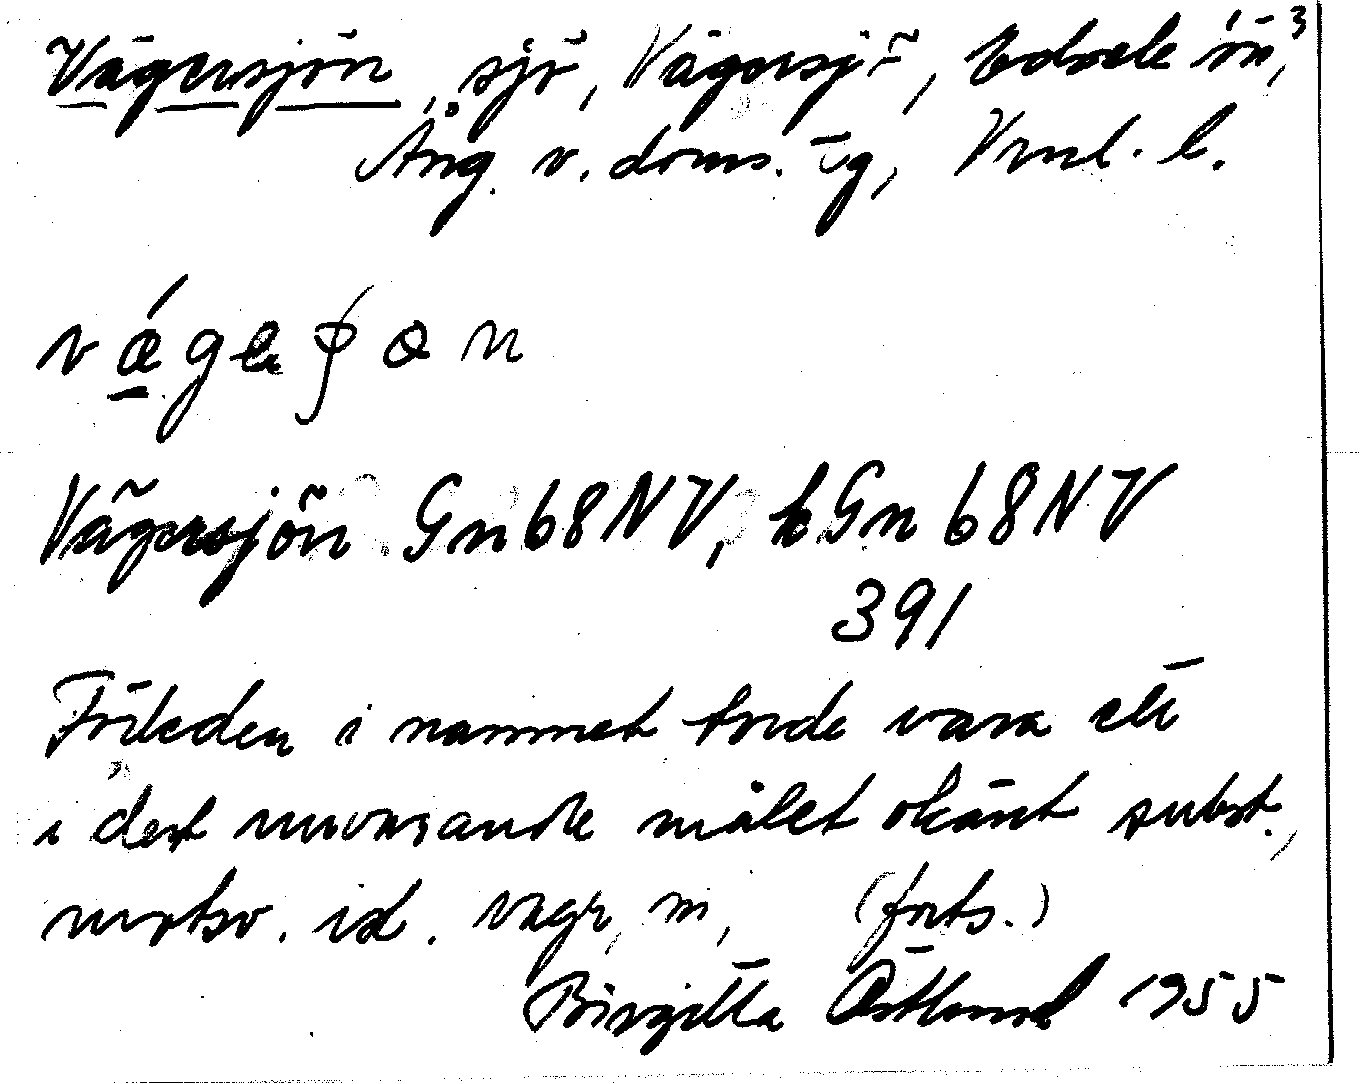 Vägersjön, sjö, Vägersjö, Edsele sn,
Ång. v. doms. tg, Vnl. l.
Vägersjön Gn68NV, bGn68NV
391
Förleden i namnet torde vara ett
i det nuvarande målet okänt subst.,
motsv. isl. vagr, m, (forts.)
Birgitta Östlund 1955